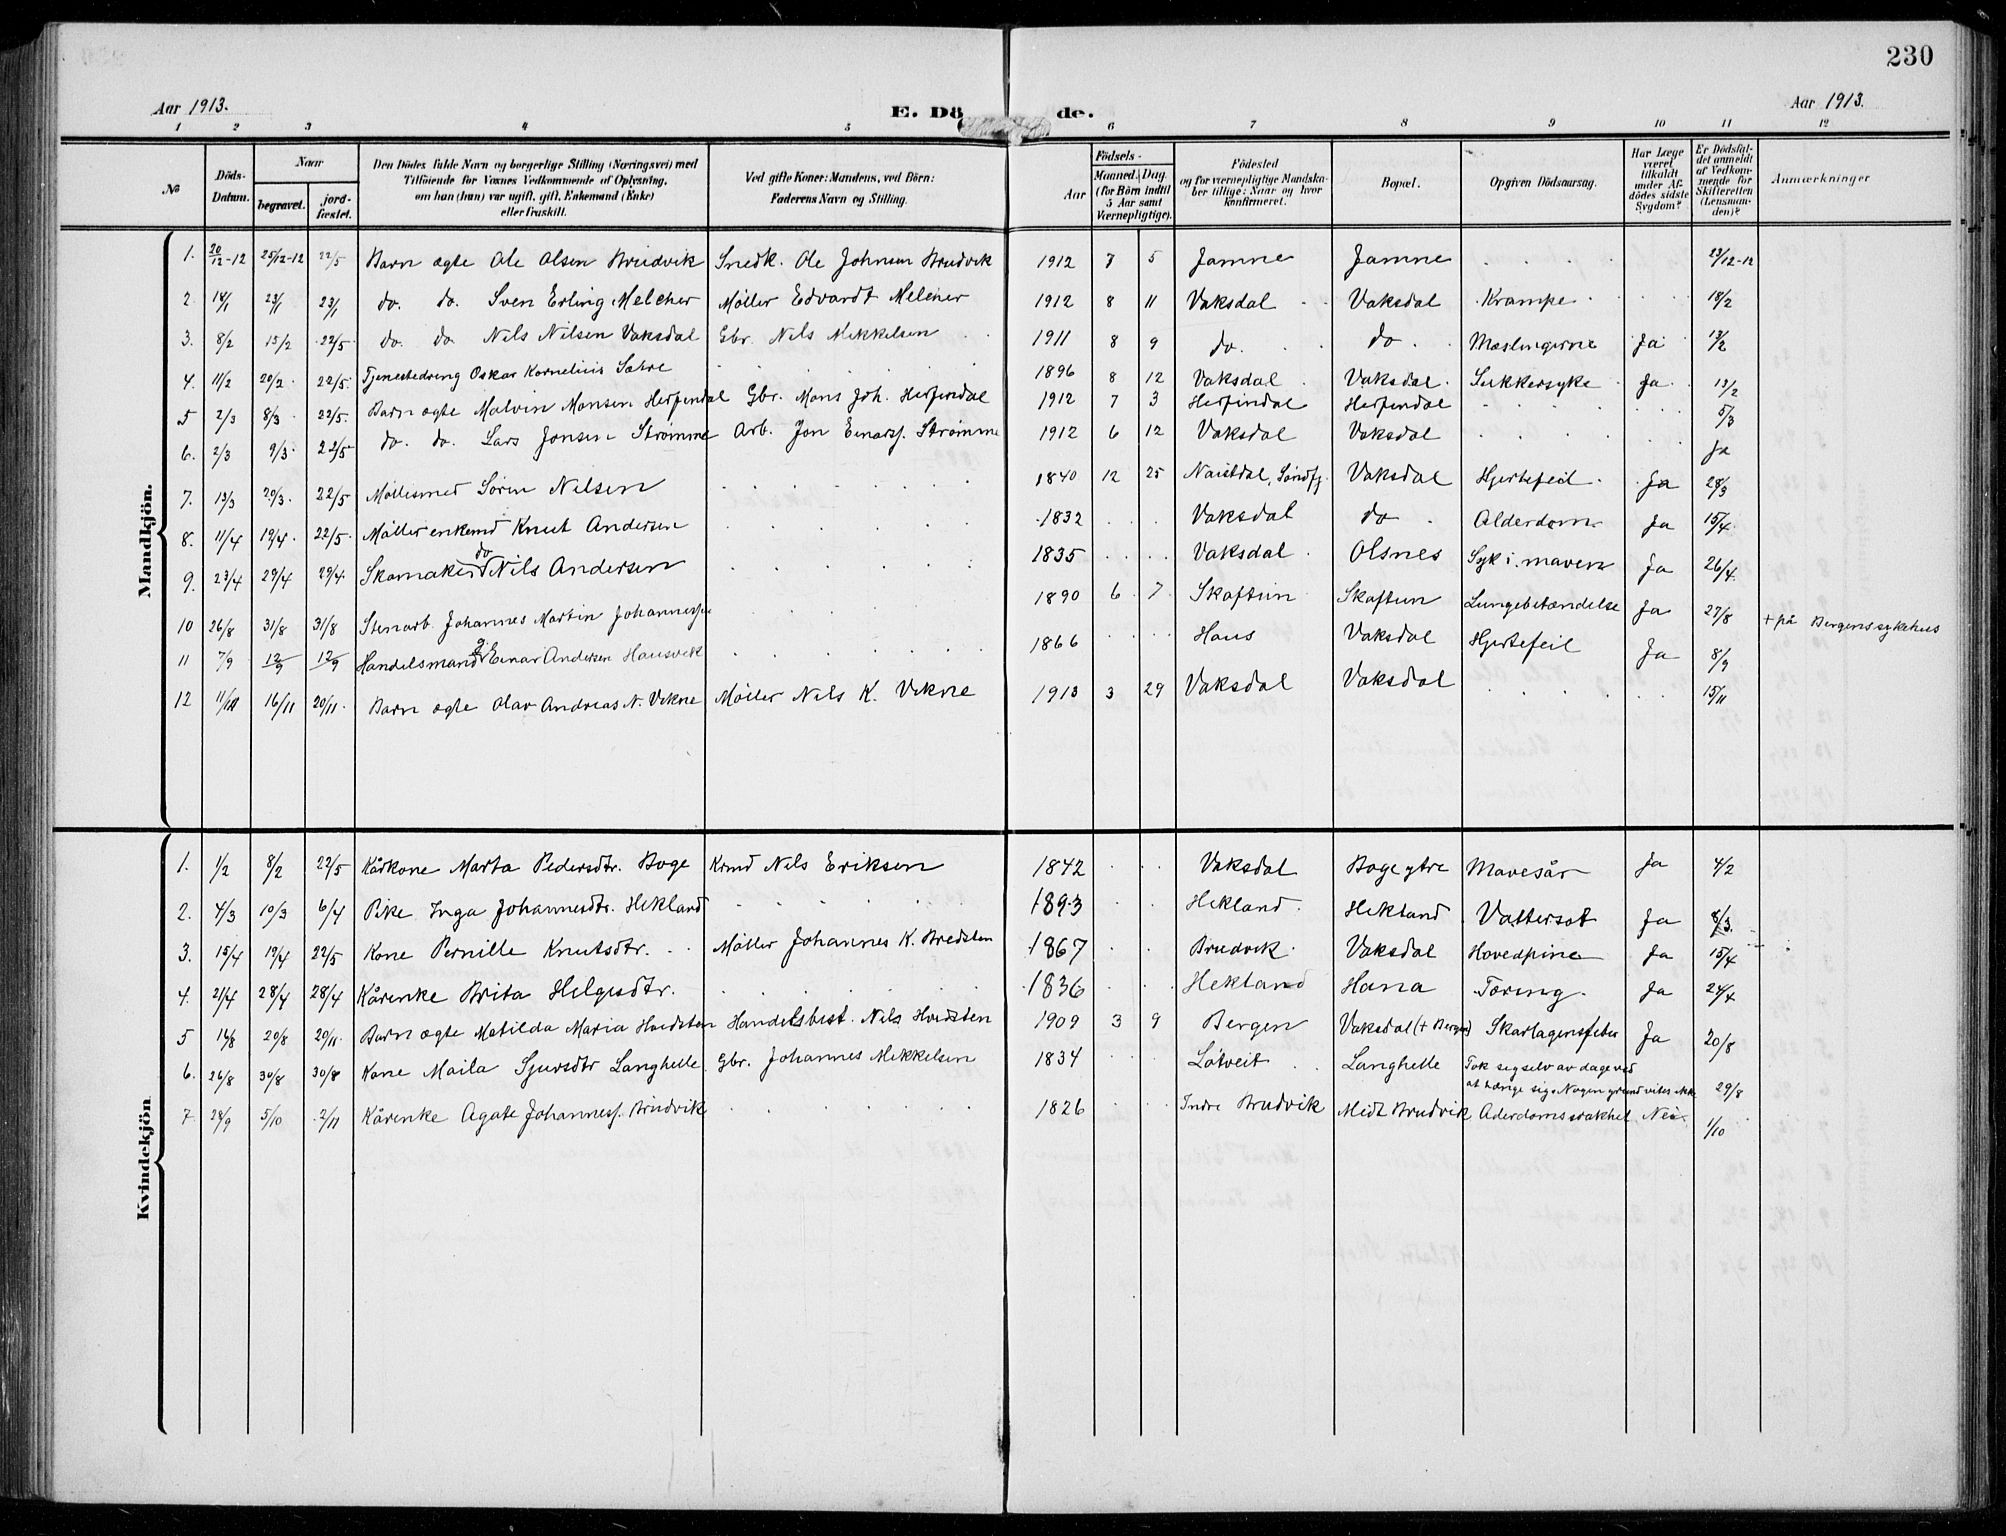 230
Aar 1913.
E. Dö de.
Aar 1913.
1 2 3 4 5 6 7 8 9 10 11 12
№ Döds-Datum. Naar begravet. jord-fæstet. Den Dödes fulde Navn og borgerlige Stilling (Næringsvei) med Tilföiende for Voxnes Vedkommende af Oplysning, om han (hun) var ugift, gift, Enkemand (Enke) eller fraskilt. Ved gifte Koner: Mandens, ved Börn: Faderens Navn og Stilling. Aar Födsels- Maaned. Dag. (for Börn indtil 5 Aar samt Værnepligtige). Födested og for værnepligtige Mandskaber tillige: Naar og hvor konfirmeret. Bopæl. Opgiven Dödsaarsag. Har Læge været tilkaldt under Afdödes sidste Sygdom? Er Dödsfaldet anmeldt af Vedkommende for Skifteretten (Lensmanden)? Anmærkninger
Mandkjön.
1. 20/12-12 25/12-12 22/5 Barn ægte Ole Olsen Brudvik Snedk. Ole Johnsen Brudvik 1912 7 5 Jamne Jamne 23/12-12
2. 18/1 23/1 23/1 do. do. Sven Erling Melcher Møller Edvardt Melcher 1912 8 11 Vaksdal Vaksdal Krampe 18/2
3. 8/2 15/2 22/5 do. do. Nils Nilsen Vaksdal Gbr. Nils Mikkelsen 1911 8 9 do. do. Mæslingerne Ja 13/2
4. 11/2 20/2 22/5 Tjenestedreng Oskar Kornelius Sætre 1896 8 12 Vaksdal Vaksdal Sukkersyke Ja 13/2
5 2/3 8/3 22/5. Barn ægte Malvin Monsen Herfindal Gbr. Mons Joh. Herfindal 1912 7 3 Herfindal Herfindal 5/3
6. 2/3 9/3 22/5 do. do. Lars Jonsen Strømme Arb. Jon Einarsf. Strømme 1912 6 12 Vaksdal Vaksdal Ja
7. 13/3 20/3. 22/5 Møllesmed Sören Nilsen 1840 12 25 Naustdal, Søndfj. Vaksdal Hjertefeil Ja 28/3
8. 11/4 19/4. 22/5. Møller enkemd Knut Andersen 1832 Vaksdal do Alderdom Ja 15/4
9. 23/4 29/4 29/4. Skomaker do Nils Andersen 1835 Vaksdal Olsnes Syk i maven Ja 26/4
10 26/8 31/8 31/8 Stenarb. Johannes Martin Johannessen 1890 6 7 Skaftun Skaftun Lungebetændelse Ja 27/8 + på Bergens sykehus
11 7/9 12/9 12/9 Handelsmand g. Einar Andersen Hausvik 1866 Haus Vaksdal Hjertefeil Ja 8/9
12 11/11 16/11 20/11. Barn ægte Olav Andreas N. Vikne Møller Nils K. Vikne 1913 3 29 Vaksdal Vaksdal 15/11
Kvindekjön
1. 1/2 8/2 22/5 Kårkone Marta Pedersdtr. Boge Krmd Nils Eriksen 1842 Vaksdal Boge ytre Mavesår Ja 4/2
2. 4/3 10/3 6/4 Pike Inga Johannesdtr. Hekland 1893 Hekland Hekland Vattersot Ja 8/3.
3. 15/4 19/4 22/5 Kone Pernille Knutsdtr. Møller Johannes K. Bredsten 1867 Brudvik Vaksdal Hovedpine Ja 15/4
4. 21/4 28/4 28/4 Kårenke Brita Helgesdtr. 1836 Hekland Hana Tæring Ja 24/4
5 16/8 20/8 20/11. Barn ægte Matilda Maria Hvidsten Handelsbest. Nils Hvidsten 1909 3 9 Bergen Vaksdal (+ Bergen) Skarlagensfeber Ja 20/8
6. 26/8 30/8 30/8 Kone Maila Sjursdtr Langhelle Gbr. Johannes Mikkelsen 1834 Løtveit Langhelle Tok seg selv av dage ved at hænge sig. Nogen grund vites ikke 29/8
7. 28/9 5/10 2/11 Kårenke Agate Johannesf. Brudvik 1826 Indre Brudvik Midt Brudvik Aderdomssvakhet Nei. 1/10